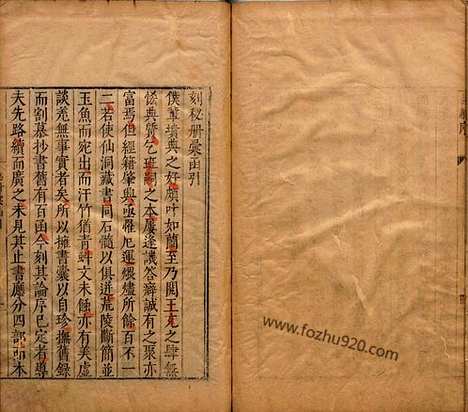 刻秘册彙函引
僕輩墳典之好頗叶如蘭至乃閱王充之肆無
恡典質乞班嗣之本屢逢譏答癖誠有之聚亦
富焉但經籍肇典亟罹厄運煨燼所餘百不一
二若使仙洞藏書同石髓以俱迸荒陵斷簡並
玉魚而宛出而汗竹猶青蟫文未蝕亦有羙虛
談羌無事實者矣所以擁書囊以自珍撫舊錄
而割慕抄書舊有百函今刻其論序已定者導
夫先路續而廣之未見其止書應分四部而本
www.fozhu920.com